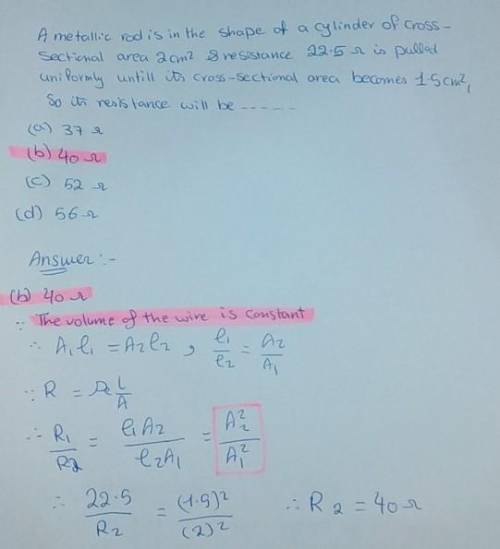 A metallic rod is in the shape of a cylinder of cross-
sectional area 2cm² & resistance 22.5 Ω is pulled
uniformly untill its cross-sectional area becomes 1.5cm²,
So its resistance will be ------
(a) 37 Ω
(b) 40 Ω
(c) 52 Ω
(d) 56 Ω
Answer:-
(b) 40 Ω
∵ The volume of the wire is constant
∴ A₁ℓ₁ = A₂ℓ₂ , ℓ₁/ℓ₂ = A₂/A₁
∵ R = ρ L/A
∴ R₁/R₂ = ℓ₁A₂/ℓ₂A₁ = A₂²/A₁²
∴ 22.5/R₂ = (1.5)²/(2)² ∴ R₂ = 40 Ω